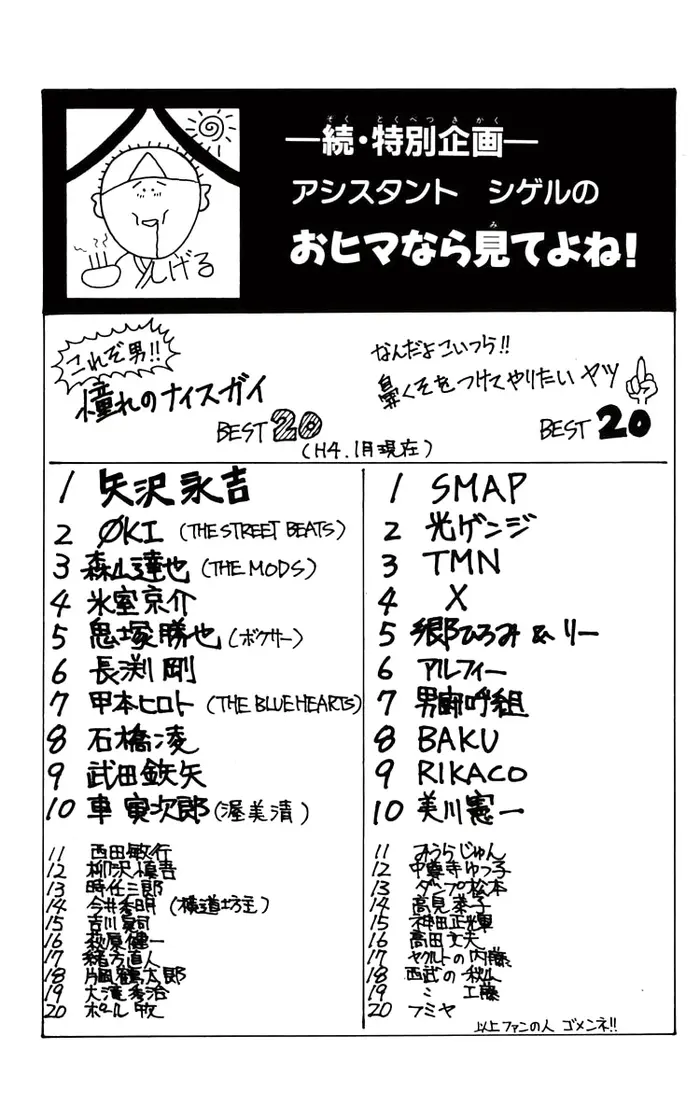 ―続・特別企画―
アシスタント シゲルの
おヒマなら見てよね!
しげる
これぞ男!!
憧れのナイスガイ
BEST 20
なんだよこいつら!!
鼻くそをつけてやりたいヤツ
BEST 20
(H4.1月現在)
1 矢沢永吉
2 ØKI (THE STREET BEATS)
3 森山達也 (THE MODS)
4 氷室京介
5 鬼塚勝也 (ボクサー)
6 長渕剛
7 甲本ヒロト (THE BLUE HEARTS)
8 石橋凌
9 武田鉄矢
10 車寅次郎 (渥美清)
11 西田敏行
12 柳沢慎吾
13 時任三郎
14 今井秀明 (横道坊主)
15 吉川晃司
16 萩原健一
17 緒方直人
18 片岡鶴太郎
19 大滝秀治
20 ポール 牧
1 SMAP
2 光ゲンジ
3 TMN
4 X
5 郷ひろみ & リー
6 アルフィー
7 男闘呼組
8 BAKU
9 RIKACO
10 美川憲一
11 みうらじゅん
12 中尊寺ゆつ子
13 ダンプ松本
14 高見恭子
15 神田正輝
16 高田文夫
17 ヤクルトの内藤
18 西武の秋山
19 〃 工藤
20 フミヤ
以上ファンの人 ゴメンネ!!